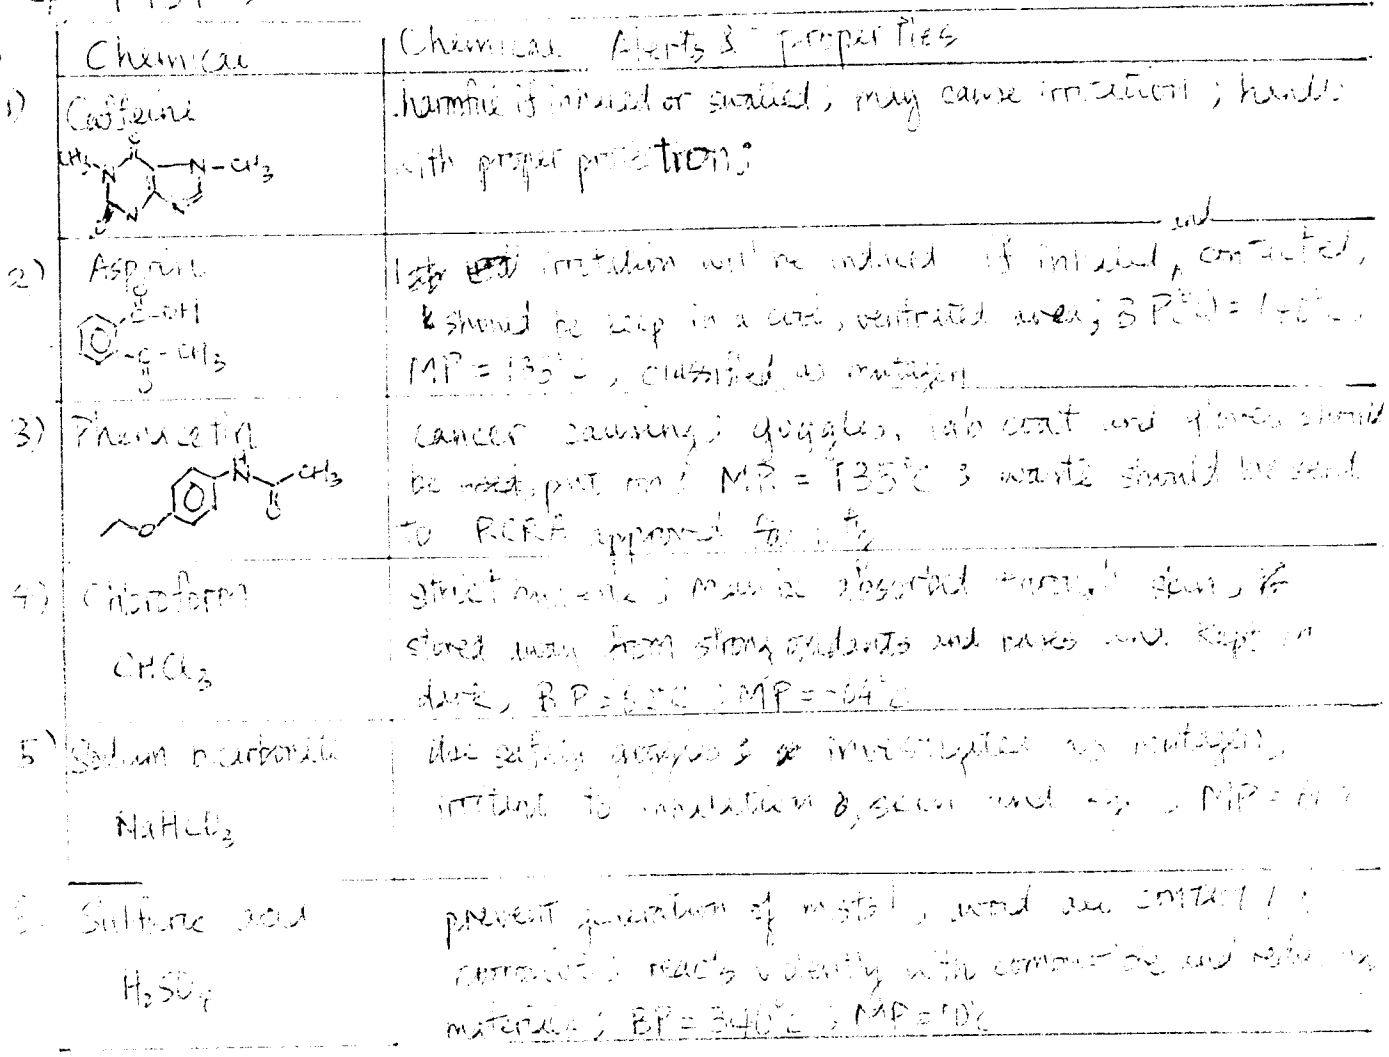 Chemical Chemical Alerts & properties
1) Caffeine harmful if inhaled or swalled; may cause irritation; handle
with proper protection;
CH3 N N-CH3
N N
2) Aspirin irritation will be induced if inhaled, and contacted,
C-OH should be keep in a cool, ventrated area; BP = 140°C
-C-CH3 MP = 135°C, classified as mutagen
O
3) Phenacetin cancer causing; goggles, lab coat and gloves should
be put on; MP = 135°C; waste should be send
to RCRA approved facility
4) Chloroform strict hygiene; may be absorbed through skin,
CHCl3 stored away from strong oxidants and bases and kept in
dark, BP = 62°C; MP = -64°C
5) Sodium bicarbonate Use safety goggles; investigated as mutagen,
NaHCO3 irritant to inhalation &, skin and MP =
Sulfuric acid prevent generation of mists!, avoid all contact!;
H2SO4 corrosive; reacts violently with combustible and reducing
materials; BP = 340°C; MP = 10°C